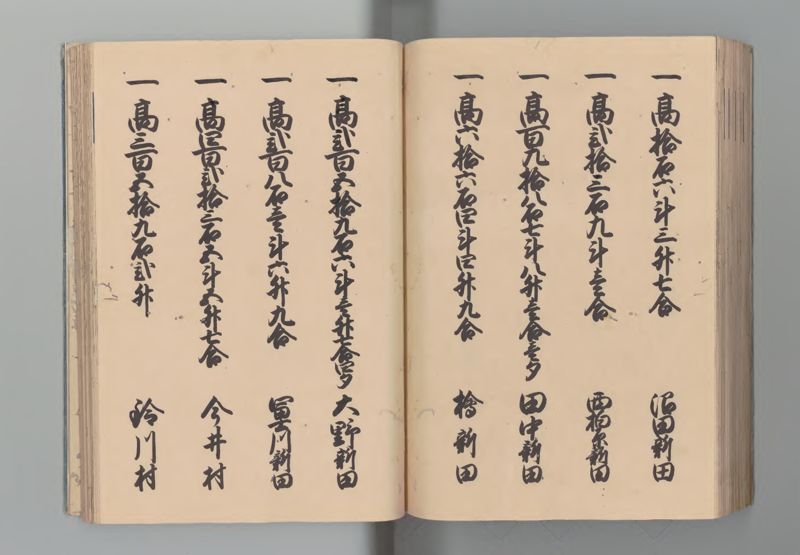 一高拾石六斗三升七合 沼田新田
一高弐拾三石九斗壱合 西柏原新田
一高百九拾八石七斗八升壱合壱夕 田中新田
一高六拾六石四斗四升九合 檜新田
一高弐百五拾九石六斗壱升七合四夕 大野新田
一高弐百八石壱斗六升九合 冨士川新田
一高四百弐拾三石五斗五升七合 今井村
一高三百五拾九石弐升 鈴川村